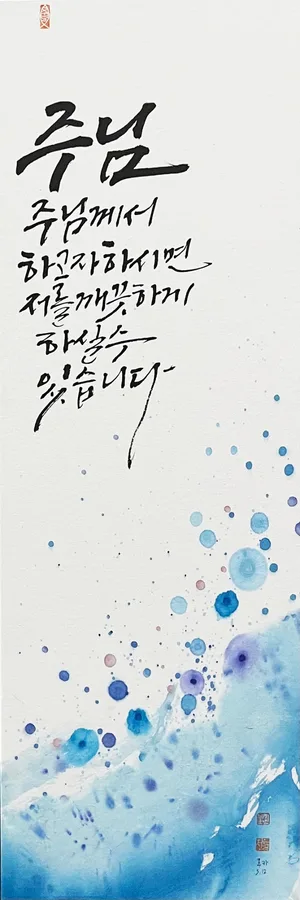 주님
주님께서
하고자하시면
저를깨끗하게
하실수
있습니다